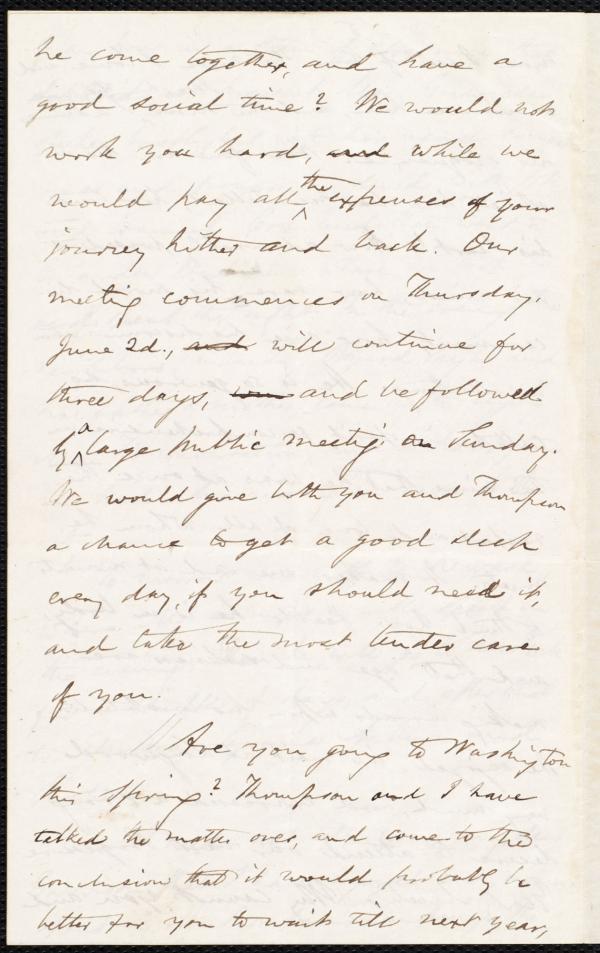 he come together, and have a
good social time? We would not
work you hard, and while we
would pay all the expenses of your
journey hither and back. Our
meeting commences on Thursday,
June 2d., and will continue for
three days, and be followed
by a large public meeting on Sunday.
We would give both you and Thompson
a chance to get a good sleep
every day, if you should need it,
and take the most tender care
of you.
// Are you going to Washington
this Spring? Thompson and I have
talked the matter over, and come to the
conclusion that it would probably be
better for you to wait till next year,